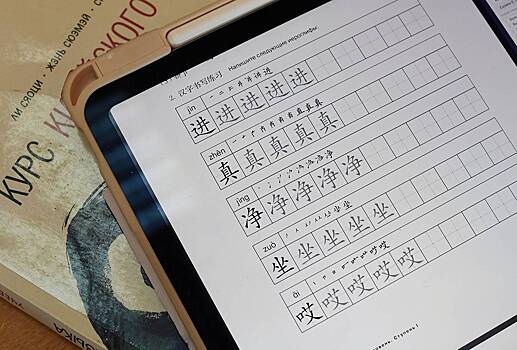 ЛИ СЯОЦИ · ЖЭНЬ СЮЭМЭЙ
КУРС
СКОГО
ЗЫКА
2. 汉字书写练习 Напишите следующие иероглифы.
jìn
进 进 进 进 进
zhēn
真 真 真 真 真
jìng
净 净 净 净 净
zuò
坐 坐 坐 坐 坐
āi
哎 哎 哎 哎 哎
Ступень I